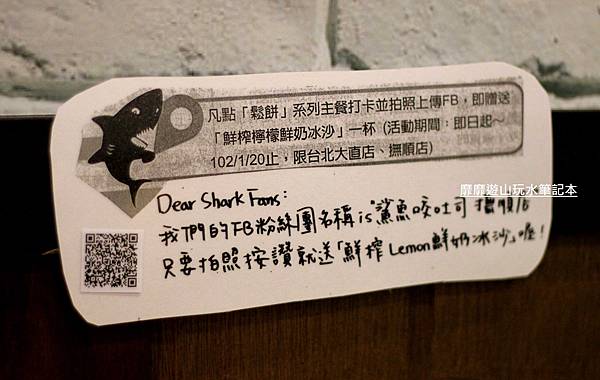 凡點「鬆餅」系列主餐打卡並拍照上傳FB，即贈送
「鮮榨檸檬鮮奶冰沙」一杯（活動期間：即日起～
102/1/20止，限台北大直店、撫順店）
Dear Shark Fans：
我們的FB粉絲團名稱is"鯊魚咬吐司 撫順店
只要拍照按讚就送「鮮榨Lemon鮮奶冰沙」喔！
靡靡遊山玩水筆記本